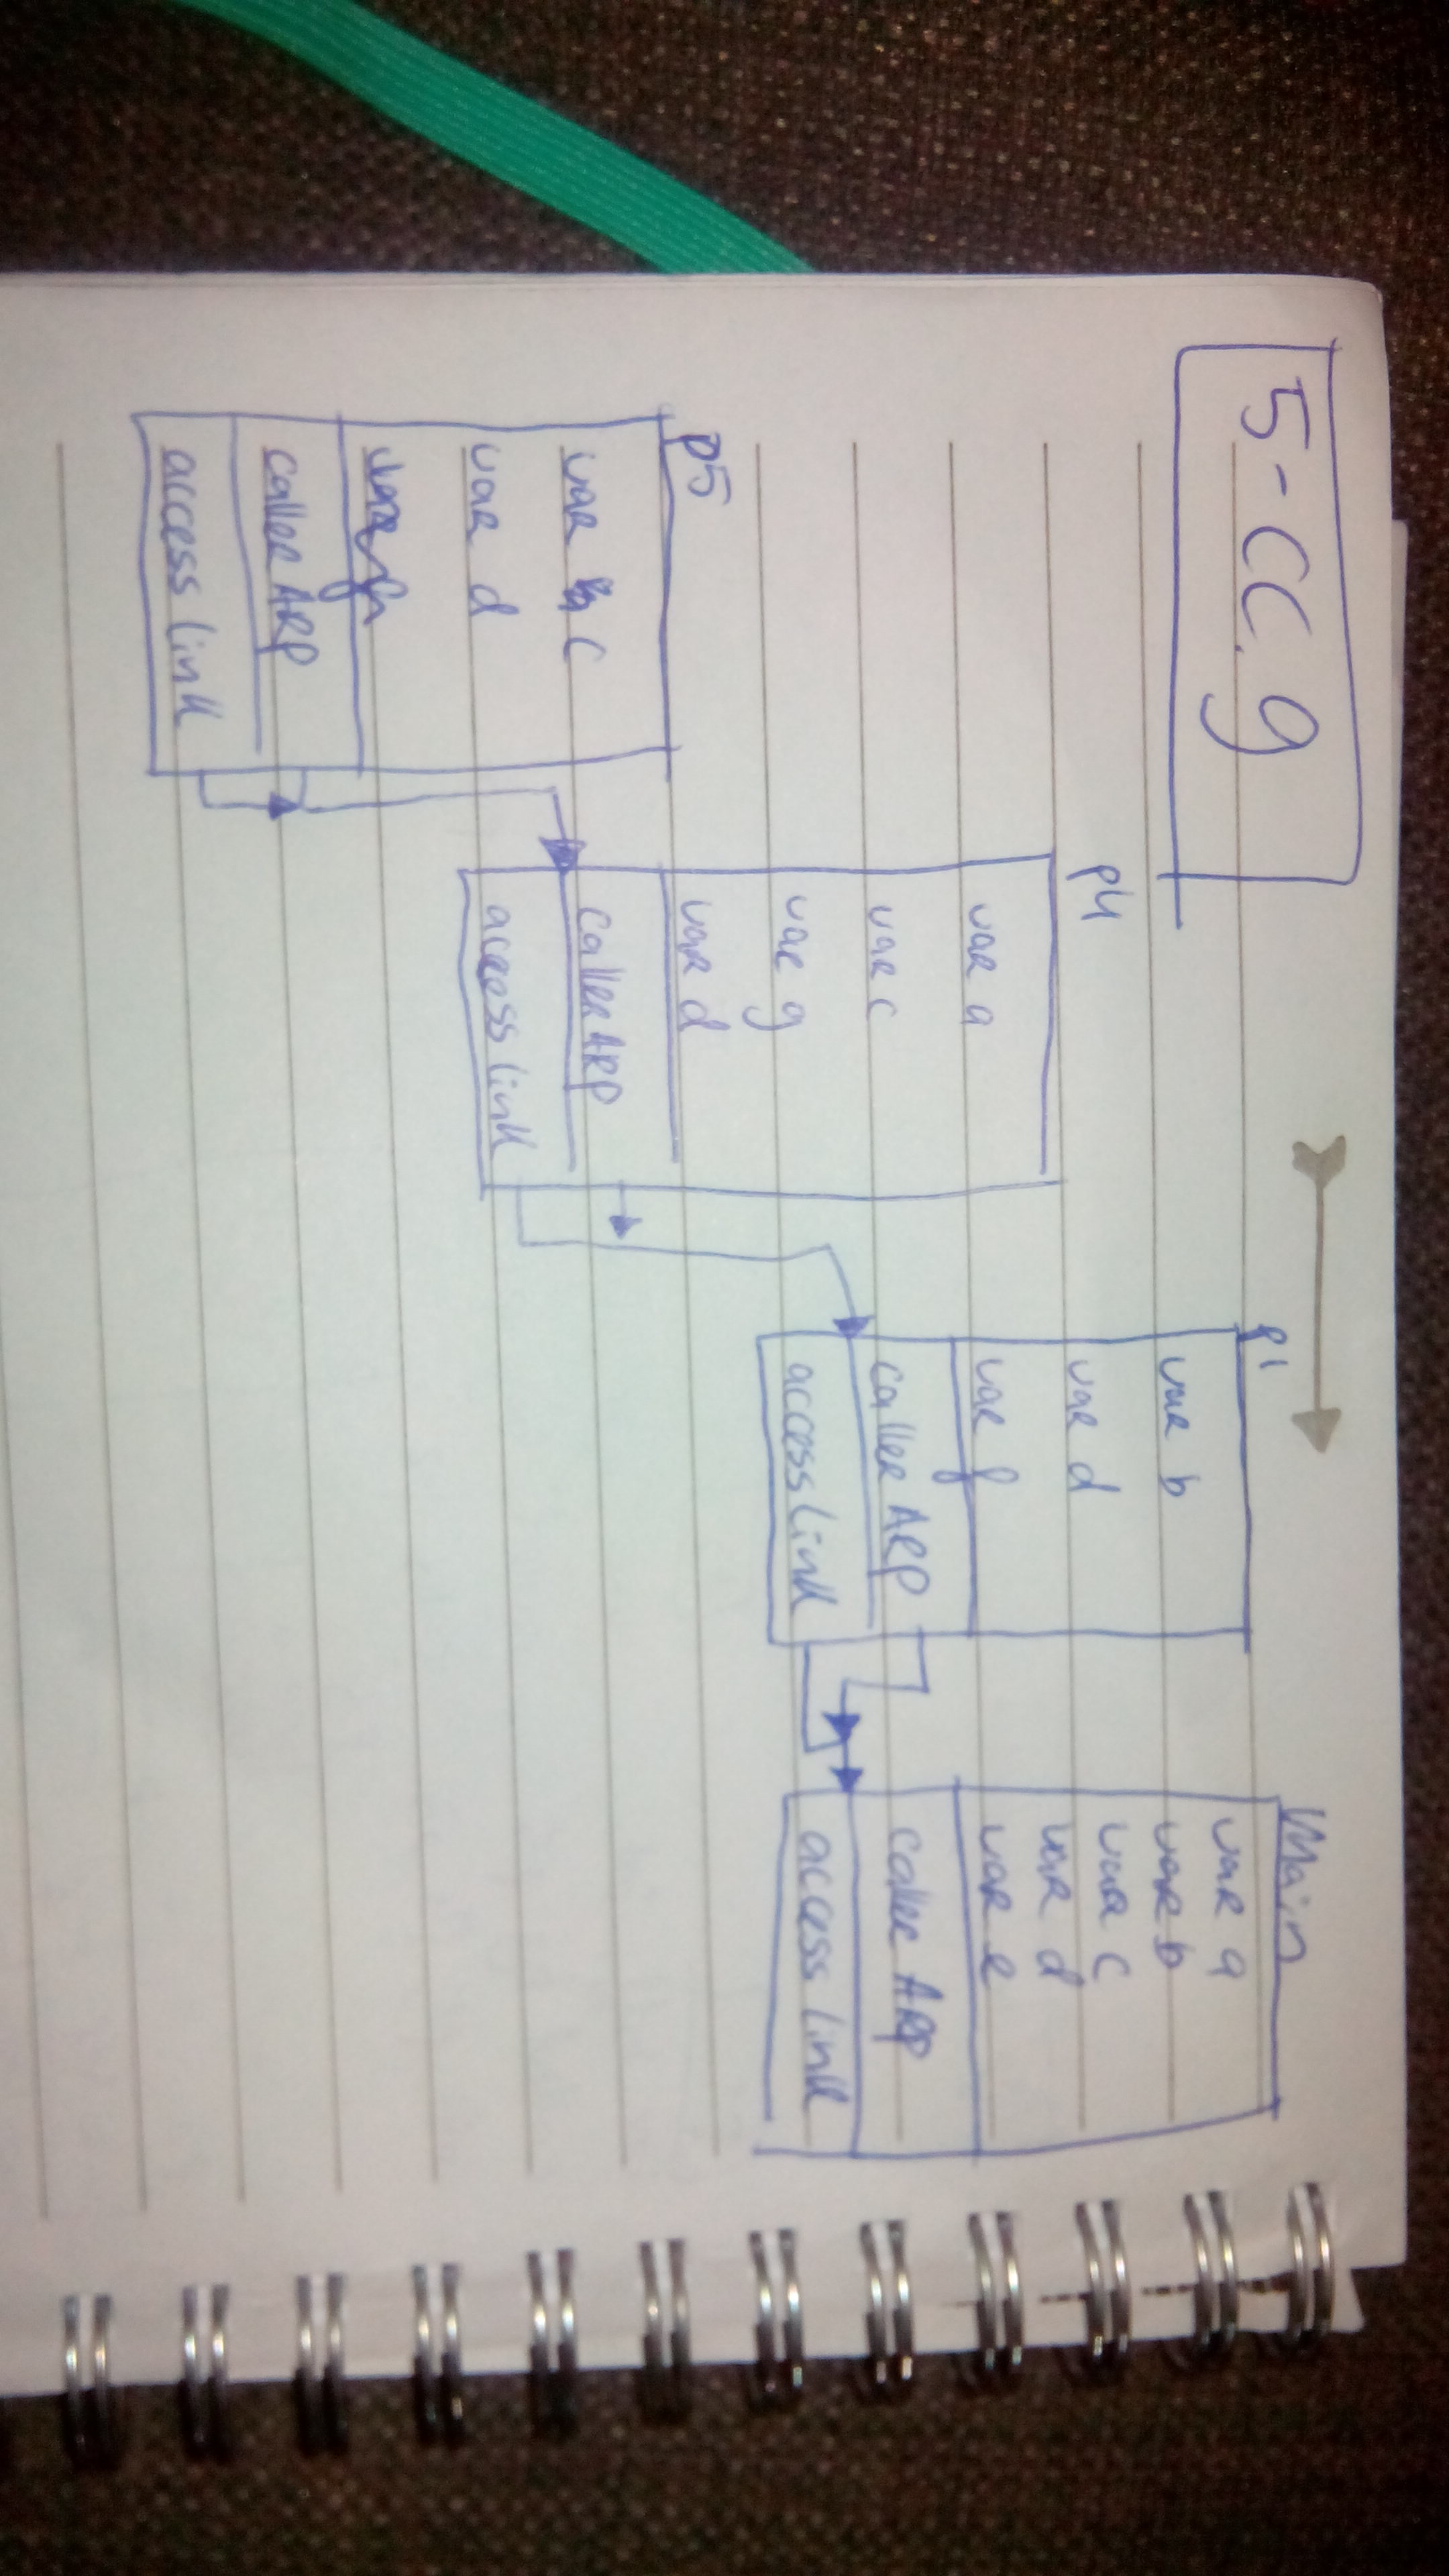 5-CC.9
p5
var c
var d
caller ARP
access link
p4
var a
var c
var g
var d
caller ARP
access link
p1
var b
var d
var f
caller ARP
access link
Main
var a
var b
var c
var d
var e
caller ARP
access link